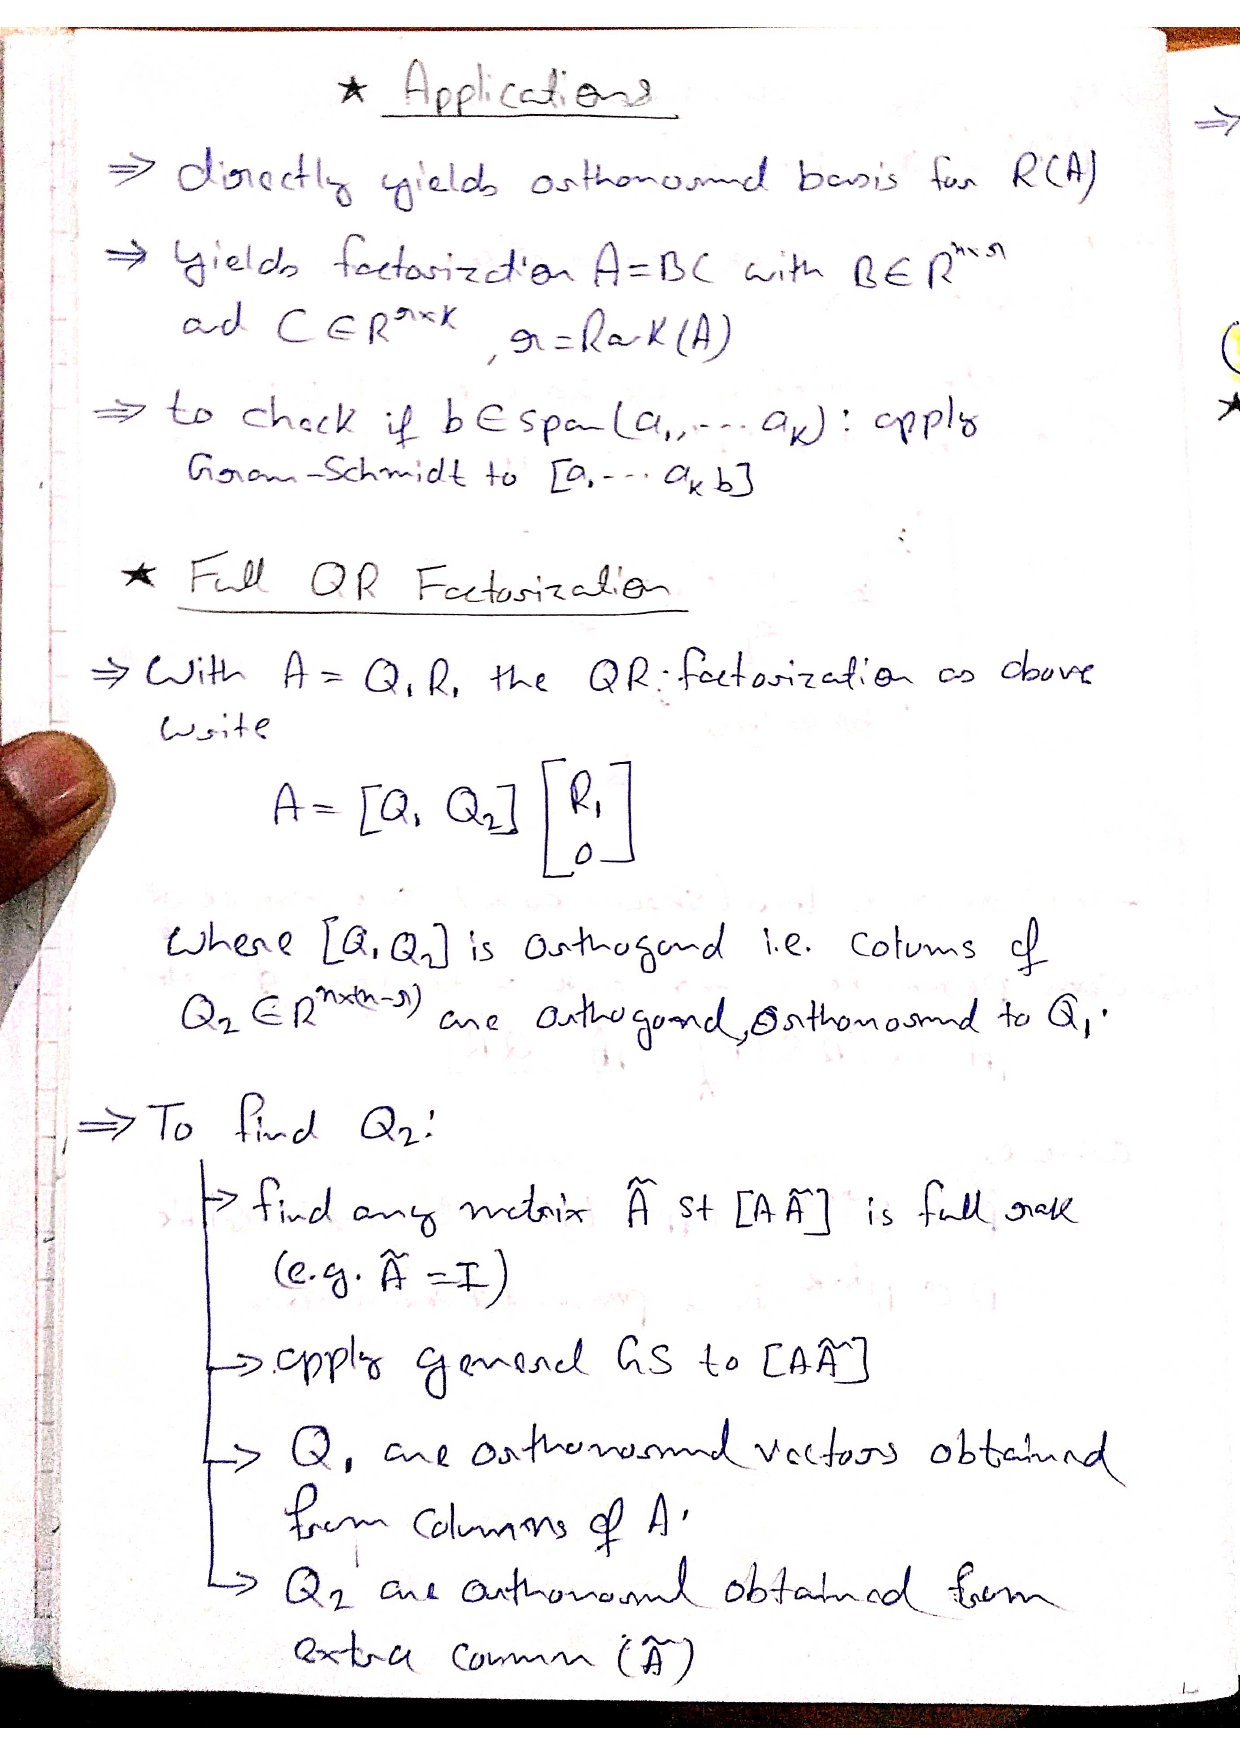 ★ Applications
⇒ directly yields orthonormal basis for R(A)
⇒ yields factorization A=BC with B∈R^{n×r}
and C∈R^{r×K}, r=Rank(A)
⇒ to check if b∈span(a₁,---- a_K): apply
Gram-Schmidt to [a₁--- a_K b]
★ Full QR Factorization
⇒ With A = Q₁R₁ the QR factorization as above
write
A = [Q₁ Q₂] [R₁
0]
where [Q₁ Q₂] is orthogonal i.e. colums of
Q₂∈R^{n×(n-r)} are orthogonal, orthonormal to Q₁.
⇒ To find Q₂:
→ find any matrix Ã st [A Ã] is full rank
(e.g. Ã = I)
→ apply general GS to [A Ã]
→ Q₁ are orthonormal vectors obtained
from columns of A.
→ Q₂ are orthonormal obtained from
extra (Ã)